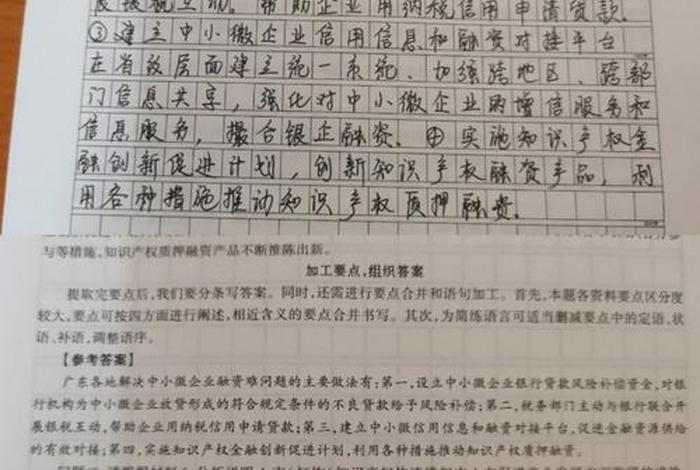 展银税互动。帮助企业用纳税信用申请贷款.
③建立中小微企业信用信息和融资对接平台
在省级层面建立统一系统、加强跨地区、跨部
门信息共享，强化对中小微企业的增信服务和
信息服务，撮合银企融资. ④实施知识产权金
融创新促进计划，创新知识产权融资产品，利
用各种措施推动知识产权质押融资.
与等措施,知识产权质押融资产品不断推陈出新。
加工要点,组织答案
提取完要点后,我们要分条写答案。同时,还需进行要点合并和语句加工。首先,本题各资料要点区分度
较大,要点可按四方面进行阐述,相近含义的要点合并书写。其次,为简练语言可适当删减要点中的定语、状
语、补语,调整语序。
【参考答案】
广东各地解决中小微企业融资难问题的主要做法有:第一,设立中小微企业银行贷款风险补偿资金,对银
行机构为中小微企业放贷形成的符合规定条件的不良贷款给予风险补偿;第二,税务部门主动与银行联合开
展银税互动,帮助企业用纳税信用申请贷款;第三,建立中小微信用信息和融资对接平台,促进金融资源供给
的有效对接;第四,实施知识产权金融创新促进计划,利用各种措施推动知识产权质押融资。